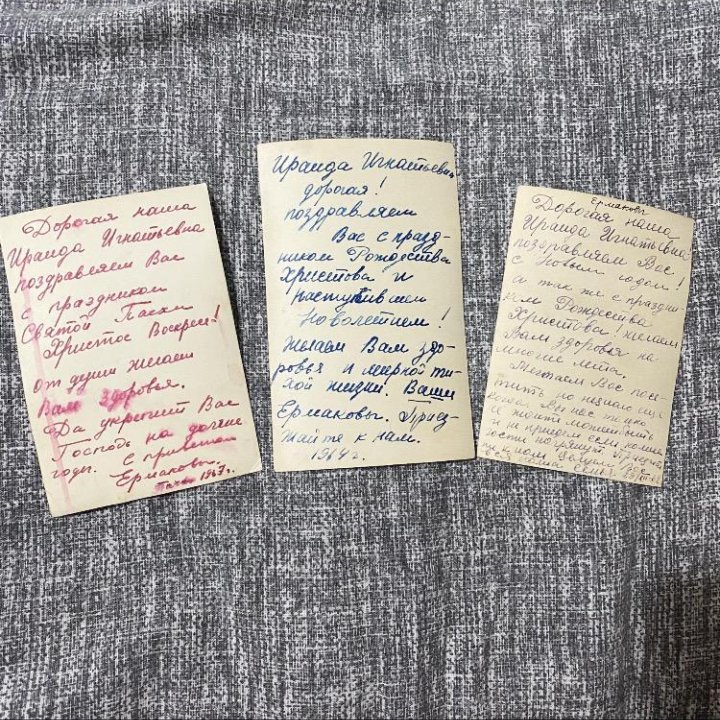 Дорогая наша
Ираида Игнатьевна
поздравляем Вас
с праздником
Святой Пасхи
Христос Воскресе!
от души желаем
Вам здоровья.
Да укрепит Вас
Господь на долгие
годы. С приветом
Ермаковы.
1967г.
Ираида Игнатьевна
дорогая!
поздравляем
Вас с празд-
ником Рождества
Христова и
наступившем
Новолетием!
Желаем Вам здо-
ровья и мирной ти-
хой жизни. Ваши
Ермаковы. Приез-
жайте к нам.
1964г.
Ермаковы
Дорогая наша
Ираида Игнатьевна!
поздравляем Вас
с Новым годом!
а так же с праздни-
ком Рождества
Христова! желаем
Вам здоровья на
многие лета.
Вас
и не приедем если